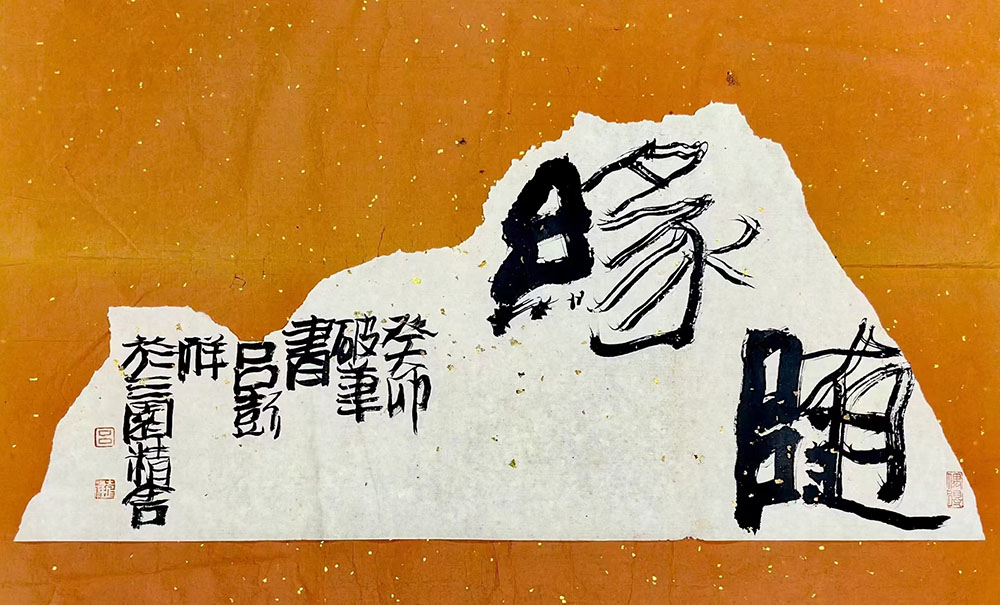 随
緣
癸卯
破筆
書
呂彭
祥
於三園精舍
呂